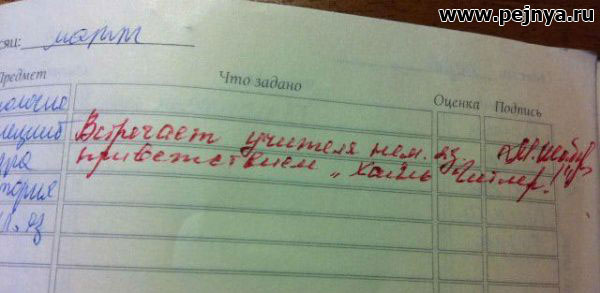 www.pejnya.ru
сяц: март
Предмет Что задано Оценка Подпись
Встречает учителя нем. яз.
приветствием „Хайль Гитлер!"
тория